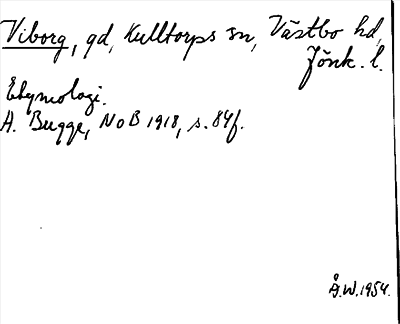 Viborg, gd, Kulltorps sn, Västbo hd,
Jönk. l.
Etymologi.
A. Bugge, NoB 1918, s. 84f.
Å.W. 1954.